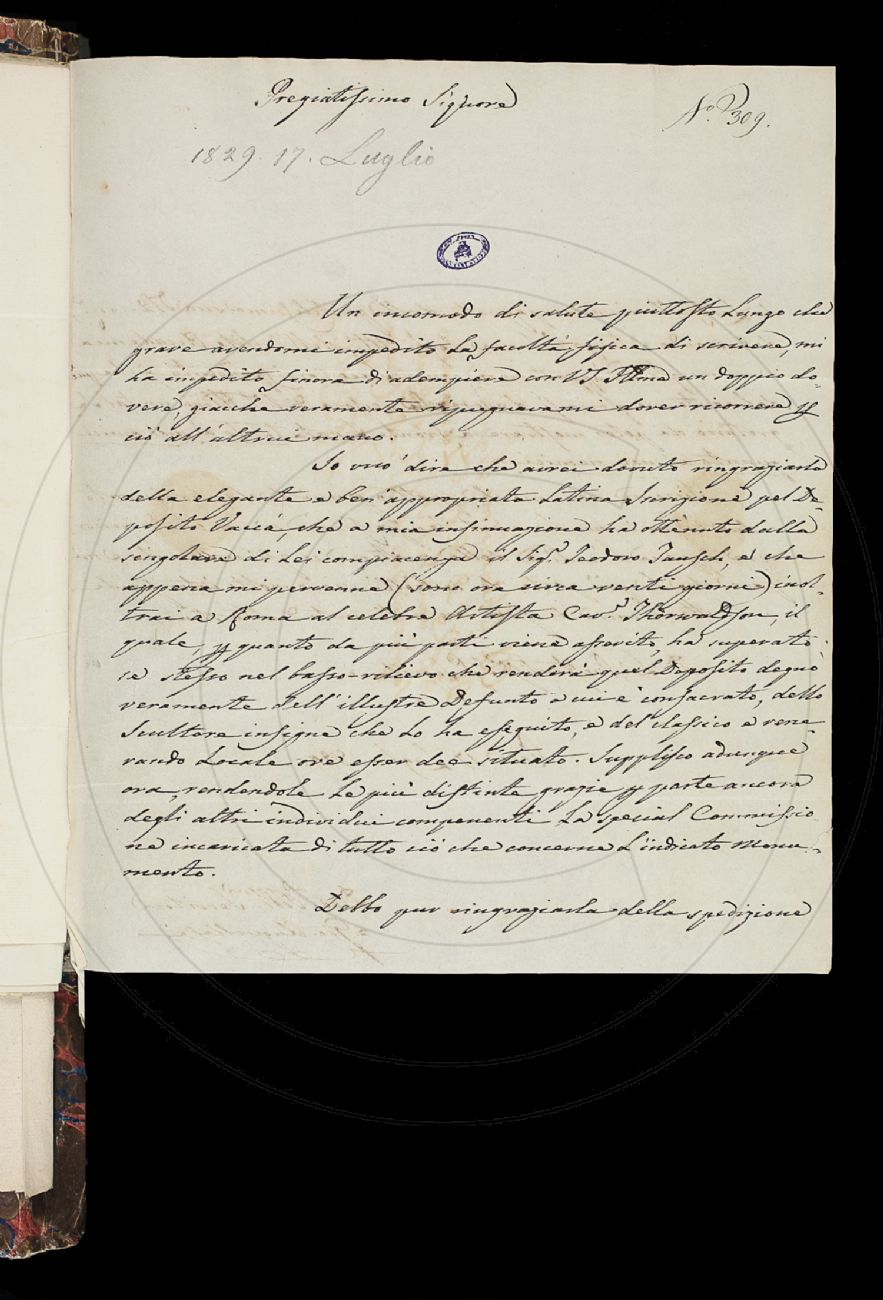 Pregiatissimo Signore
N.o 309.
1829. 17. Luglio
Un incomodo di salute piuttosto lungo che
grave avendomi impedito la facoltà fisica di scrivere, mi
ha impedito finora di adempiere con VS Illma un doppio do-
vere, giacchè veramente ripugnavami dover ricorrere p
ciò all'altrui mano.
Io vuo' dire che avrei dovuto ringraziarla
della elegante e ben' appropriata Latina Iscrizione pel De-
posito Vaccà, che a mia insinuazione ha ottenuto dalla
singolare di Lei compiacenza il Sig.r Teodoro, e che
appena mi pervenne (sono ora circa venti giorni) inol-
trai a Roma al celebre Artista Cav.r Thorwaldson, il
quale, p quanto da più parti viene asserito, ha superato
se stesso nel basso-rilievo che renderà quel Deposito degno
veramente dell'illustre Defunto a cui è consacrato, dello
Scultore insigne che lo ha eseguito, e del classico e vene-
rando Locale ove esser dee situato. Supplisco adunque
ora, rendendole le più distinte grazie p parte ancora
degli altri individui componenti la special Commissio-
ne incaricata di tutto ciò che concerne l'indicato Monu-
mento.
Debbo pur ringraziarla della spedizione